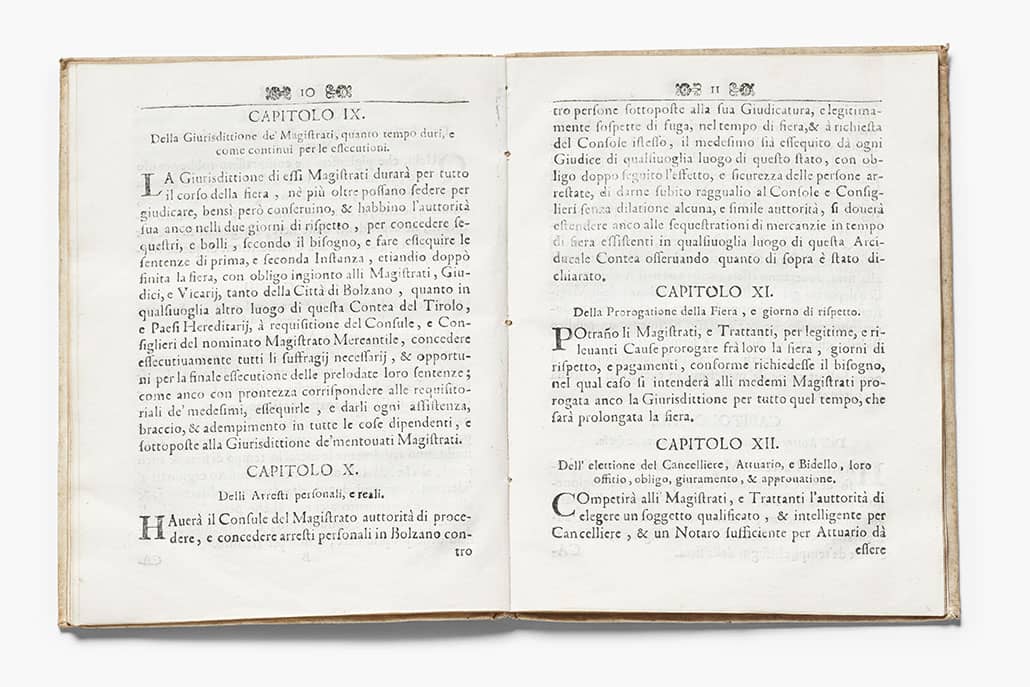 10
CAPITOLO IX.
Della Giurisdittione de' Magiſtrati, quanto tempo duri, e
come continui per le eſſecutioni.
LA Giurisdittione di eſſi Magiſtrati durarà per tutto
il corſo della fiera , nè più oltre poſſano ſedere per
giudicare, bensì però conſeruino, & habbino l'auttorità
ſua anco nelli due giorni di riſpetto , per concedere ſe-
queſtri, e bolli , ſecondo il biſogno, e fare eſſequire le
ſentenze di prima, e ſeconda Inſtanza , etiandio doppò
finita la fiera, con obligo ingionto alli Magiſtrati, Giu-
dici, e Vicarij, tanto della Città di Bolzano , quanto in
qualſiuoglia altro luogo di queſta Contea del Tirolo,
e Paeſi Hereditarij, à requiſitione del Conſule, e Con-
ſiglieri del nominato Magiſtrato Mercantile, concedere
eſſecutiuamente tutti li ſuffragij neceſſarij , & opportu-
ni per la finale eſſecutione delle prelodate loro ſentenze;
come anco con prontezza corriſpondere alle requiſito-
riali de' medeſimi, eſſequirle , e darli ogni aſſiſtenza,
braccio, & adempimento in tutte le coſe dipendenti, e
ſottopoſte alla Giurisdittione de'mentouati Magiſtrati.
CAPITOLO X.
Delli Arreſti perſonali, e reali.
HAuerà il Conſule del Magiſtrato auttorità di proce-
dere, e concedere arreſti perſonali in Bolzano con-
tro
11
tro perſone ſottopoſte alla ſua Giudicatura, e legitima-
mente ſoſpette di fuga, nel tempo di fiera,& à richieſta
del Conſole iſteſſo, il medeſimo ſià eſſequito dà ogni
Giudice di qualſiuoglia luogo di queſto ſtato, con ob-
ligo doppo ſeguito l'effetto, e ſicurezza delle perſone ar-
reſtate, di darne ſubito raggualio al Conſole e Conſig-
lieri ſenza dilatione alcuna, e ſimile auttorità, ſi douerà
eſtendere anco alle ſequeſtrationi di mercanzie in tempo
di fiera eſſiſtenti in qualſiuoglia luogo di queſta Arci-
ducale Contea oſſeruando quanto di ſopra è ſtato di-
chiarato.
CAPITOLO XI.
Della Prorogatione della Fiera , e giorno di riſpetto.
POtrañο li Magiſtrati, e Trattanti, per legitime, e ri-
leuanti Cauſe prorogare frà loro la fiera , giorni di
riſpetto, e pagamenti, conforme richiedeſſe il biſogno,
nel qual caſo ſi intenderà alli medemi Magiſtrati pro-
rogata anco la Giurisdittione per tutto quel tempo, che
ſarà prolongata la fiera.
CAPITOLO XII.
Dell' elettione del Cancelliere, Attuario, e Bidello, loro
offitio, obligo, giuramento, & approuatione.
COmpetirà alli Magiſtrati, e Trattanti l'auttorità di
elegere un ſoggetto qualificato , & intelligente per
Cancelliere , & un Notaro ſufficiente per Attuario dà
eſſere